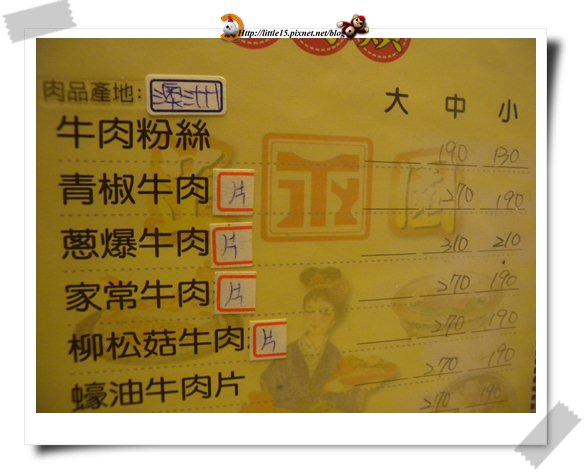 Http://little15.pixnet.net/blog
肉品產地: 澳洲
大 中 小
牛肉粉絲 190 130
青椒牛肉片 270 190
蔥爆牛肉片 310 210
家常牛肉片 270 190
柳松菇牛肉片 270 190
蠔油牛肉片 270 190
270 190